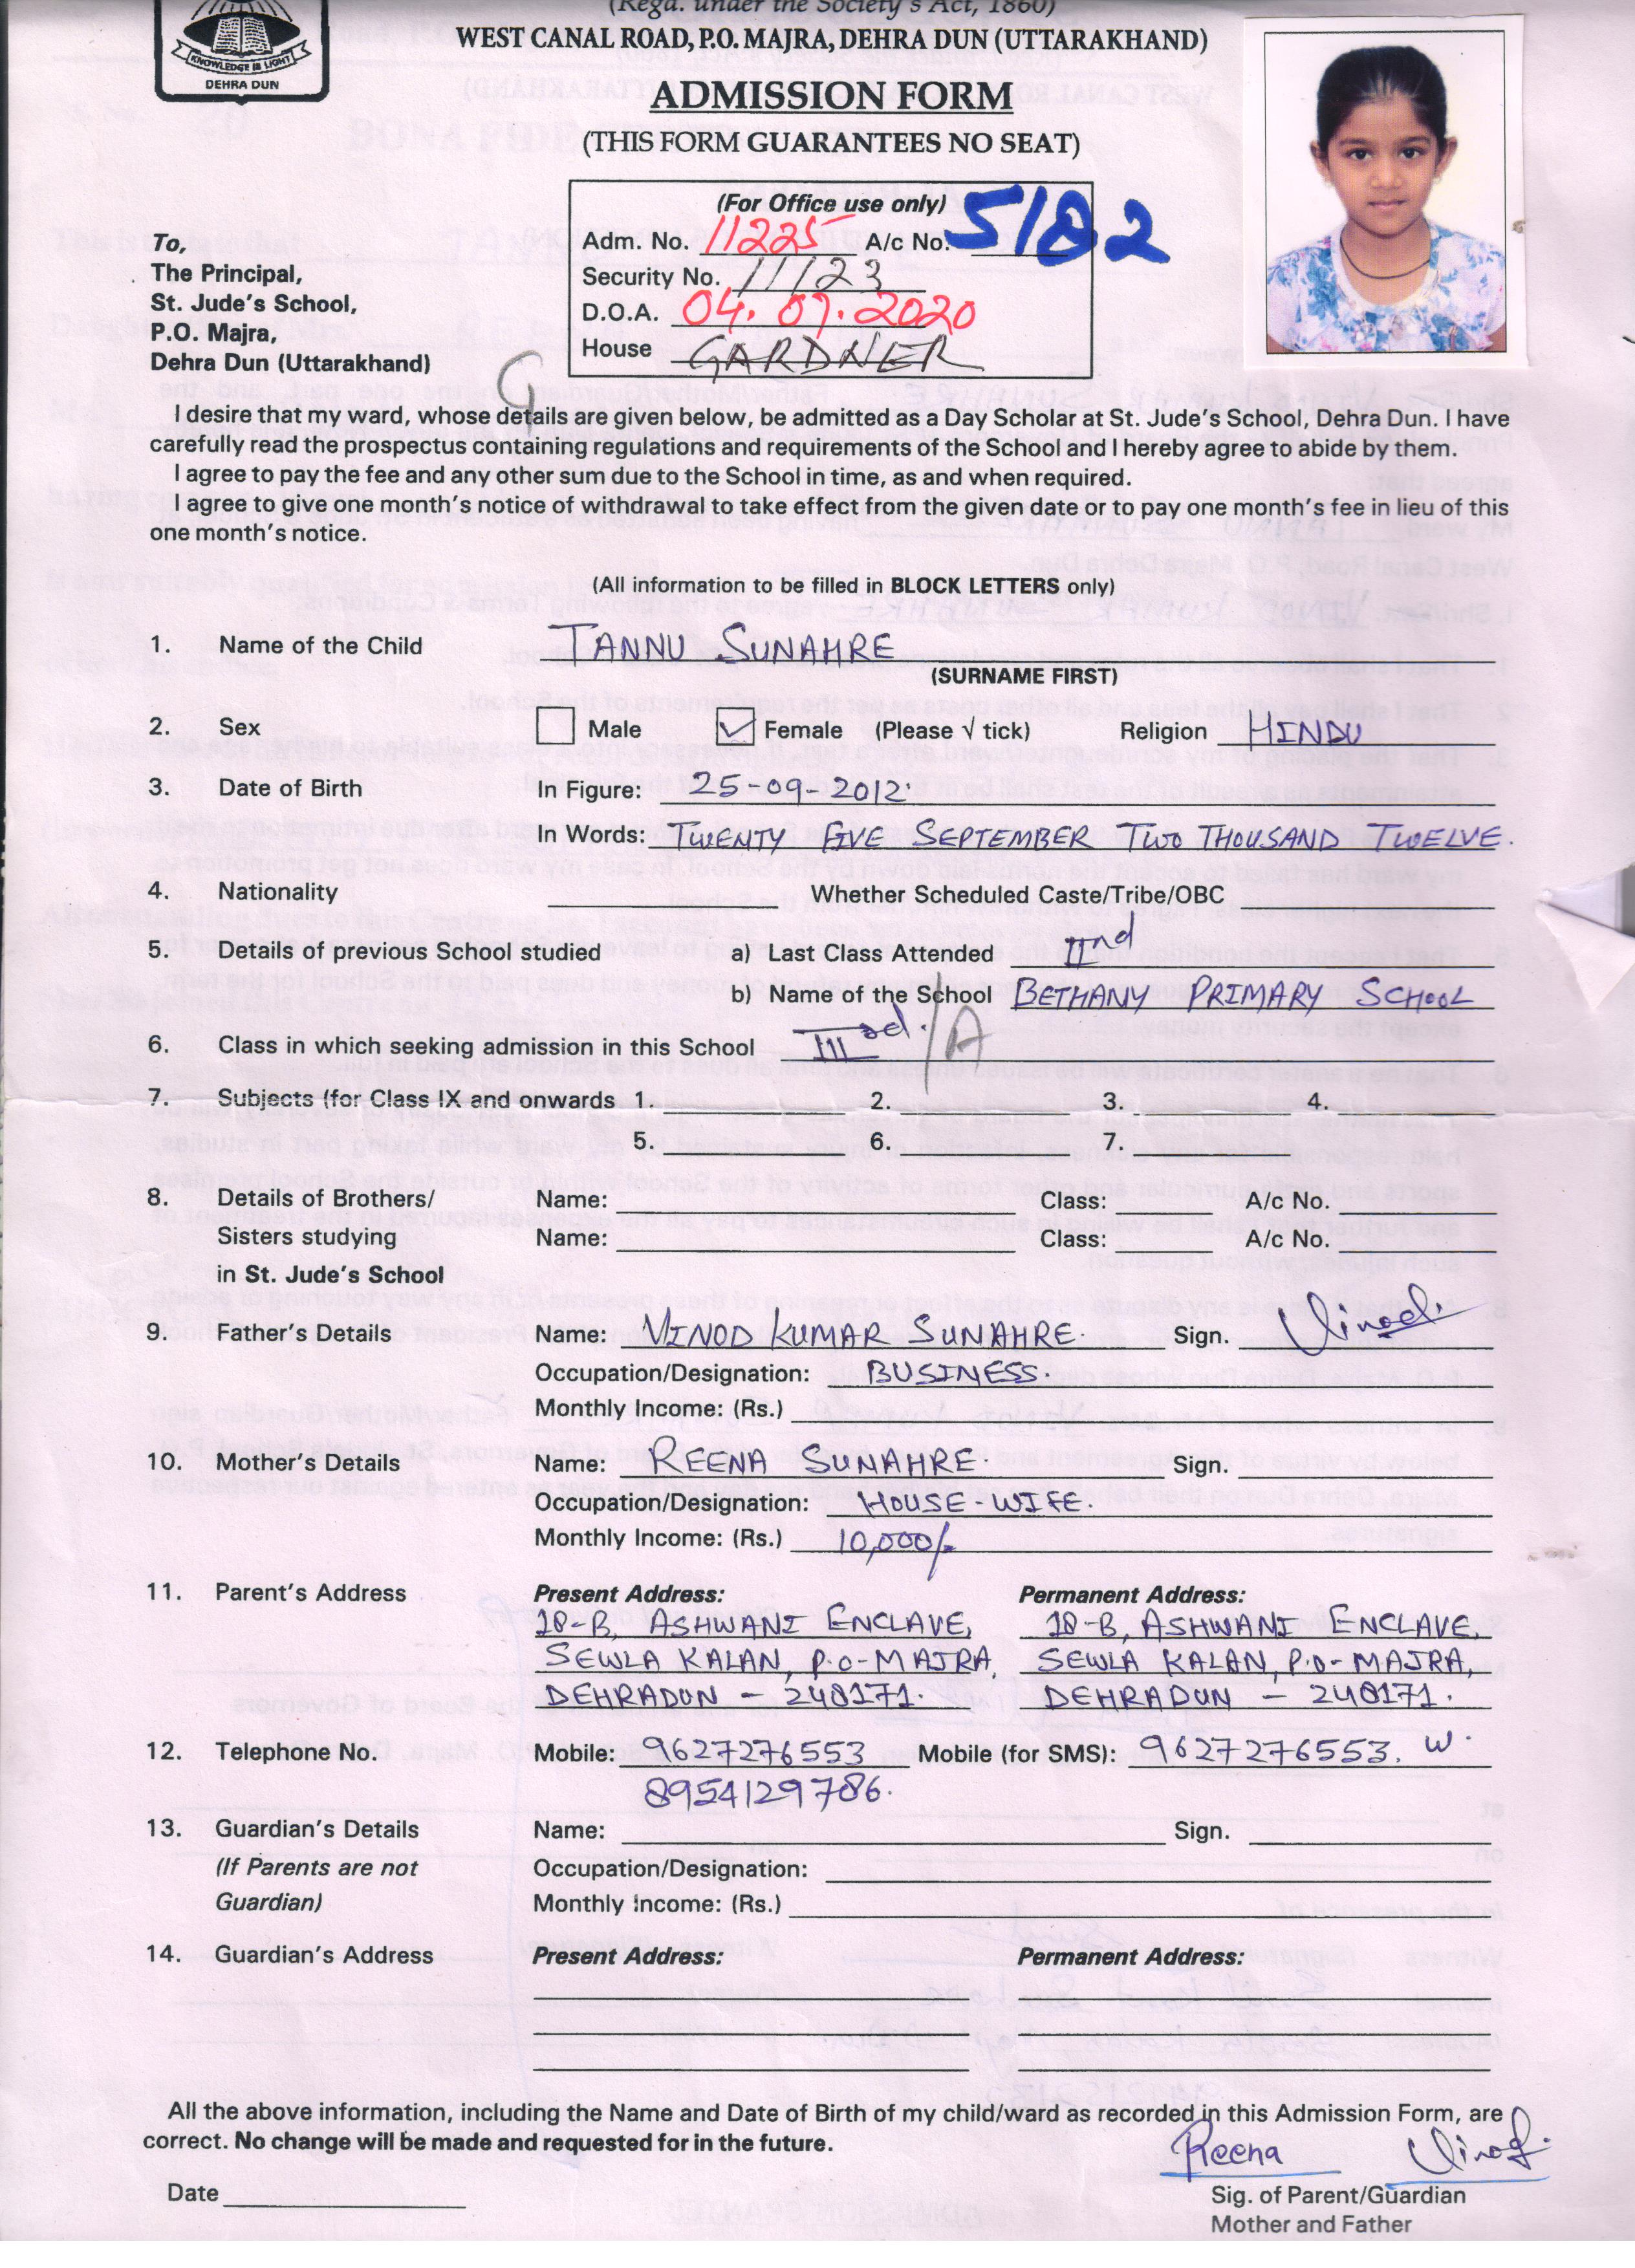 (Regd. under the Society's Act, 1860)
WEST CANAL ROAD, P.O. MAJRA, DEHRA DUN (UTTARAKHAND)
KNOWLEDGE IS LIGHT
DEHRA DUN
ADMISSION FORM
(THIS FORM GUARANTEES NO SEAT)
(For Office use only)
Adm. No. 11225 A/c No. 5182
Security No. 11123
D.O.A. 04.07.2020
House GARDNER
To,
The Principal,
St. Jude's School,
P.O. Majra,
Dehra Dun (Uttarakhand)
G
I desire that my ward, whose details are given below, be admitted as a Day Scholar at St. Jude's School, Dehra Dun. I have
carefully read the prospectus containing regulations and requirements of the School and I hereby agree to abide by them.
I agree to pay the fee and any other sum due to the School in time, as and when required.
I agree to give one month's notice of withdrawal to take effect from the given date or to pay one month's fee in lieu of this
one month's notice.
(All information to be filled in BLOCK LETTERS only)
1. Name of the Child TANNU SUNAHRE
(SURNAME FIRST)
2. Sex Male Female (Please √ tick) Religion HINDU
3. Date of Birth In Figure: 25-09-2012
In Words: TWENTY FIVE SEPTEMBER TWO THOUSAND TWELVE.
4. Nationality Whether Scheduled Caste/Tribe/OBC
5. Details of previous School studied a) Last Class Attended IInd
b) Name of the School BETHANY PRIMARY SCHOOL
6. Class in which seeking admission in this School III rd. /A
7. Subjects (for Class IX and onwards 1. 2. 3. 4.
5. 6. 7.
8. Details of Brothers/ Name: Class: A/c No.
Sisters studying Name: Class: A/c No.
in St. Jude's School
9. Father's Details Name: VINOD KUMAR SUNAHRE. Sign. Vinod.
Occupation/Designation: BUSINESS.
Monthly Income: (Rs.)
10. Mother's Details Name: REENA SUNAHRE. Sign.
Occupation/Designation: HOUSE-WIFE.
Monthly Income: (Rs.) 10,000/-
11. Parent's Address Present Address: Permanent Address:
18-B, ASHWANI ENCLAVE, 18-B, ASHWANI ENCLAVE,
SEWLA KALAN, P.O-MAJRA, SEWLA KALAN, P.O-MAJRA,
DEHRADUN - 248171. DEHRADUN - 248171.
12. Telephone No. Mobile: 9627276553 Mobile (for SMS): 9627276553. W.
8954129786.
13. Guardian's Details Name: Sign.
(If Parents are not Occupation/Designation:
Guardian) Monthly Income: (Rs.)
14. Guardian's Address Present Address: Permanent Address:
All the above information, including the Name and Date of Birth of my child/ward as recorded in this Admission Form, are
correct. No change will be made and requested for in the future.
Reena Vinod.
Date
Sig. of Parent/Guardian
Mother and Father